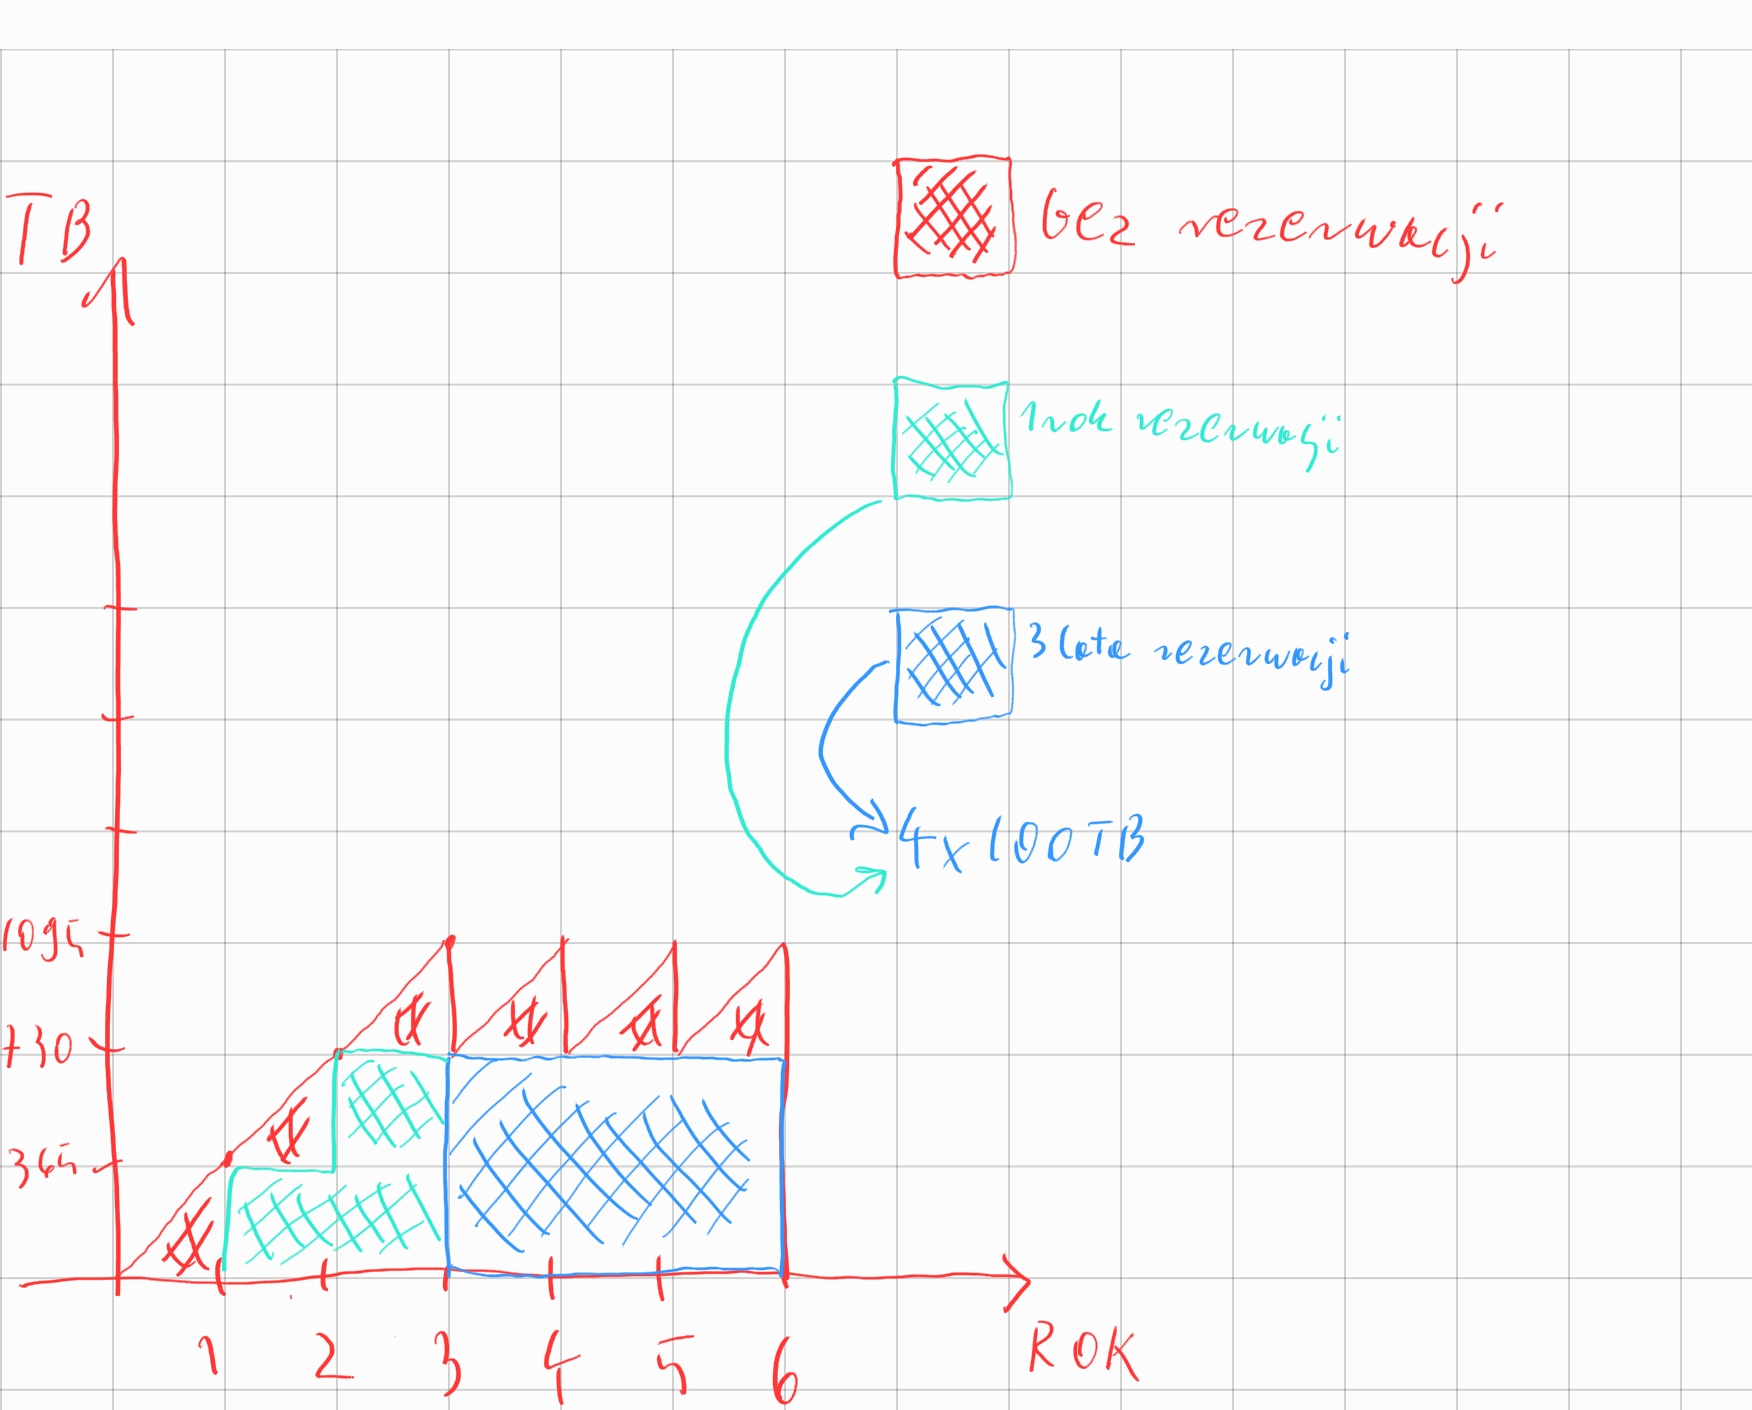 TB
bez rezerwacji
1 rok rezerwacji
3 lata rezerwacji
4x100TB
1095
730
365
1 2 3 4 5 6
ROK